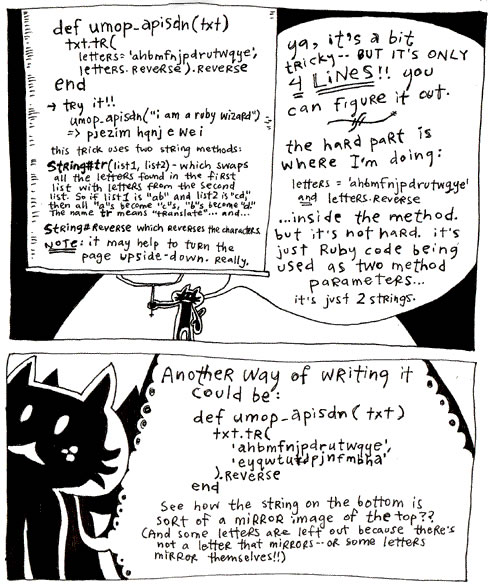 def umop_apisdn(txt)
txt.tr(
letters = 'ahbmfnjpdrutwqye',
letters.reverse).reverse
end
→ try it!!
umop_apisdn("i am a ruby wizard")
=> pjezim hqnj e we i
this trick uses two string methods:
String#tr(list1, list2) - which swaps
all the letters found in the first
list with letters from the second
list. So if list1 is "ab" and list2 is "cd,"
then all "a"s become "c"s, "b"s become "d."
The name tr means "translate"... and...
String#reverse which reverses the characters.
NOTE: it may help to turn the
page upside-down. Really.
ya, it's a bit
tricky-- BUT IT'S ONLY
4 LINES!! you
can figure it out.
the hard part is
where I'm doing:
letters = 'ahbmfnjpdrutwqye'
and letters.reverse
...inside the method.
but it's not hard. it's
just Ruby code being
used as two method
parameters...
it's just 2 strings.
Another way of writing it
could be:
def umop_apisdn (txt)
txt.tr(
'ahbmfnjpdrutwqye',
'eyqwturdpjnfmbha'
).reverse
end
See how the string on the bottom is
sort of a mirror image of the top??
(And some letters are left out because there's
not a letter that mirrors-- or some letters
mirror themselves!!)